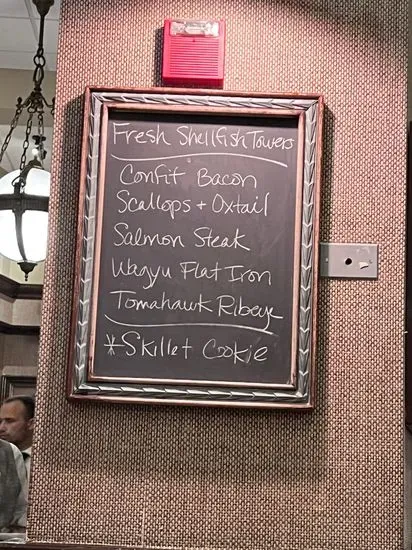 Fresh Shellfish Towers
Confit Bacon
Scallops + Oxtail
Salmon Steak
Wagyu Flat Iron
Tomahawk Ribeye
*Skillet Cookie